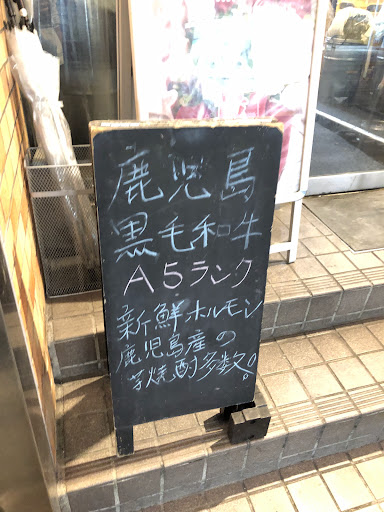 鹿児島
黒毛和牛
A5ランク
新鮮ホルモン
鹿児島産の
芋焼酎多数!